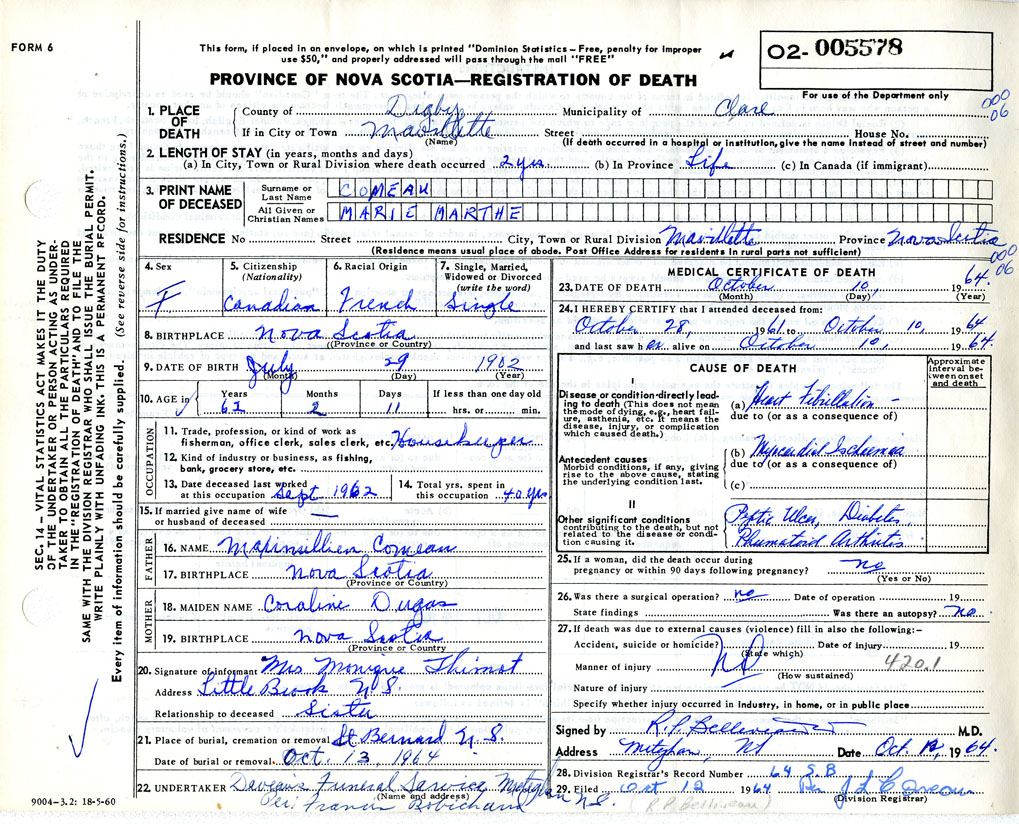 FORM 6
This form, if placed in an envelope, on which is printed "Dominion Statistics – Free, penalty for improper
use $50," and properly addressed will pass through the mail "FREE"
PROVINCE OF NOVA SCOTIA—REGISTRATION OF DEATH
02- 005578
For use of the Department only
000
06
1. PLACE OF DEATH
County of Digby Municipality of Clare
If in City or Town Mavillette Street House No.
(Name) (If death occurred in a hospital or institution, give the name instead of street and number)
2. LENGTH OF STAY (in years, months and days)
(a) In City, Town or Rural Division where death occurred 2 yrs (b) In Province Life (c) In Canada (if immigrant)
3. PRINT NAME OF DECEASED
Surname or Last Name COMEAU
All Given or Christian Names MARIE MARTHE
RESIDENCE No Street City, Town or Rural Division Mavillette Province Nova Scotia
(Residence means usual place of abode. Post Office Address for residents in rural parts not sufficient)
000
06
4. Sex F
5. Citizenship (Nationality) Canadian
6. Racial Origin French
7. Single, Married, Widowed or Divorced (write the word) Single
8. BIRTHPLACE Nova Scotia
(Province or Country)
9. DATE OF BIRTH July 29 1902
(Month) (Day) (Year)
10. AGE in Years Months Days If less than one day old
62 2 11 hrs. or min.
OCCUPATION
11. Trade, profession, or kind of work as
fisherman, office clerk, sales clerk, etc. Housekeeper
12. Kind of industry or business, as fishing,
bank, grocery store, etc.
13. Date deceased last worked
at this occupation Sept 1962
14. Total yrs. spent in
this occupation 40 yrs
15. If married give name of wife
or husband of deceased —
FATHER
16. NAME Maximillien Comeau
17. BIRTHPLACE Nova Scotia
(Province or Country)
MOTHER
18. MAIDEN NAME Coraline Dugas
19. BIRTHPLACE Nova Scotia
(Province or Country
20. Signature of informant Mrs Monique Thimot
Address Little Brook N.S.
Relationship to deceased Sister
21. Place of burial, cremation or removal St Bernard N.S.
Date of burial or removal Oct. 13 1964
22. UNDERTAKER Deveau's Funeral Service, Meteghan N.S.
(Name and address)
Per. Francis Robichaud
9004–3.2: 18-5-60
MEDICAL CERTIFICATE OF DEATH
23. DATE OF DEATH October 10, 1964.
(Month) (Day) (Year)
24. I HEREBY CERTIFY that I attended deceased from:
October 28, 1961 to October 10, 1964
and last saw her alive on October 10, 1964.
CAUSE OF DEATH
Approximate interval between onset and death
I
Disease or condition directly leading to death (This does not mean the mode of dying, e.g., heart failure, asthenia, etc. It means the disease, injury, or complication which caused death.)
(a) Heart Fibrillation –
due to (or as a consequence of)
Antecedent causes
Morbid conditions, if any, giving rise to the above cause, stating the underlying condition last.
(b) Myocardial Ischaemia
due to (or as a consequence of)
(c)
II
Other significant conditions
contributing to the death, but not related to the disease or condition causing it.
Peptic Ulcer, Diabetes,
Rheumatoid Arthritis
25. If a woman, did the death occur during
pregnancy or within 90 days following pregnancy? no
(Yes or No)
26. Was there a surgical operation? no Date of operation 19
State findings Was there an autopsy? no.
27. If death was due to external causes (violence) fill in also the following:–
Accident, suicide or homicide? Date of injury 19
(State which)
420.1
Manner of injury No
(How sustained)
Nature of injury
Specify whether injury occurred in industry, in home, or in public place
Signed by R.P. Belliveau M.D.
Address Meteghan, NS Date Oct. 12, 1964.
28. Division Registrar's Record Number 64 S.B
29. Filed Oct 12 1964 Per J L Comeau
(Division Registrar)
(R.P. Belliveau)
SEC. 14 – VITAL STATISTICS ACT MAKES IT THE DUTY
OF THE UNDERTAKER OR PERSON ACTING AS UNDER-
TAKER TO OBTAIN ALL THE PARTICULARS REQUIRED
IN THE "REGISTRATION OF DEATH" AND TO FILE THE
SAME WITH THE DIVISION REGISTRAR WHO SHALL ISSUE THE BURIAL PERMIT.
WRITE PLAINLY WITH UNFADING INK. THIS IS A PERMANENT RECORD.
Every item of information should be carefully supplied. (See reverse side for instructions.)